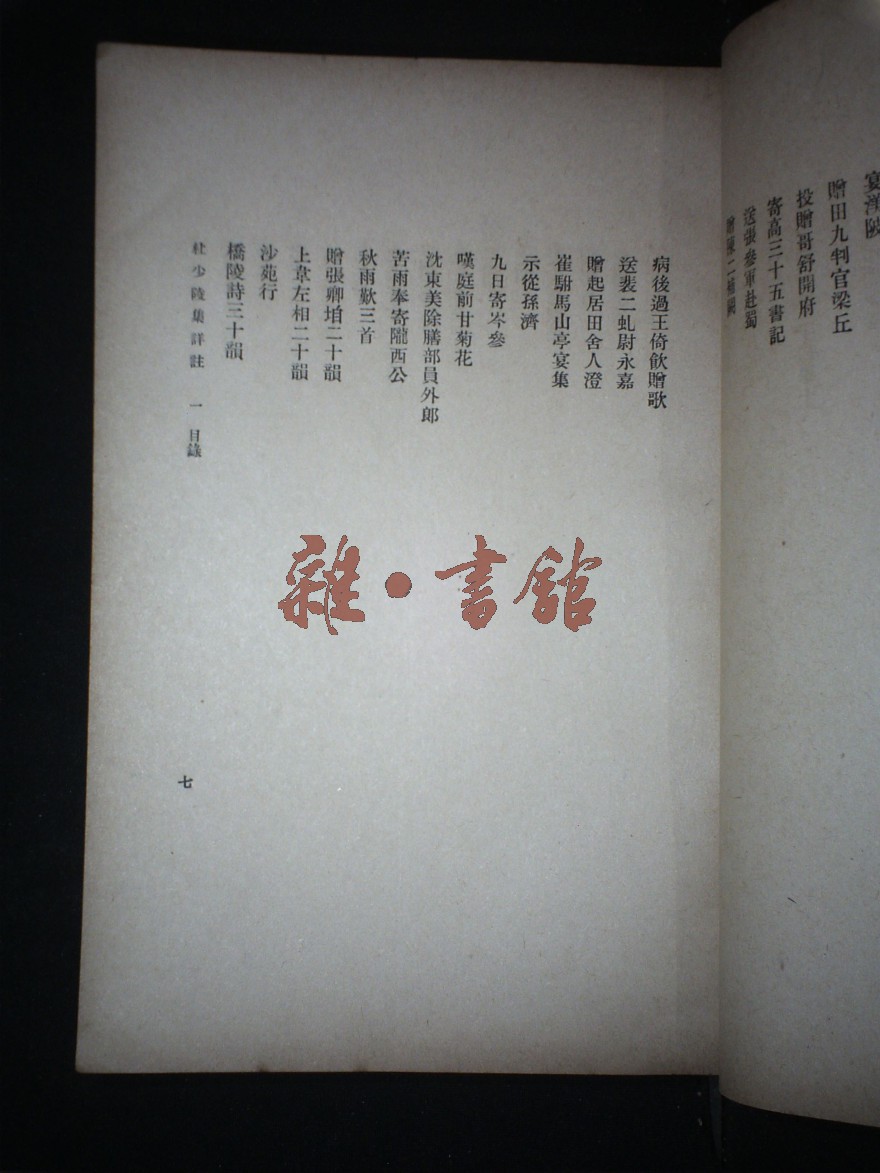 宴渼陂
贈田九判官梁丘
投贈哥舒開府
寄高三十五書記
送張參軍赴蜀
贈陳二補闕
病後過王倚飲贈歌
送裴二虬尉永嘉
贈起居田舍人澄
崔駙馬山亭宴集
示從孫濟
九日寄岑參
嘆庭前甘菊花
沈東美除膳部員外郎
苦雨奉寄隴西公
秋雨歎三首
贈張卿垍二十韻
上韋左相二十韻
沙苑行
橋陵詩三十韻
杜少陵集詳註 一 目錄
七
雜·書館